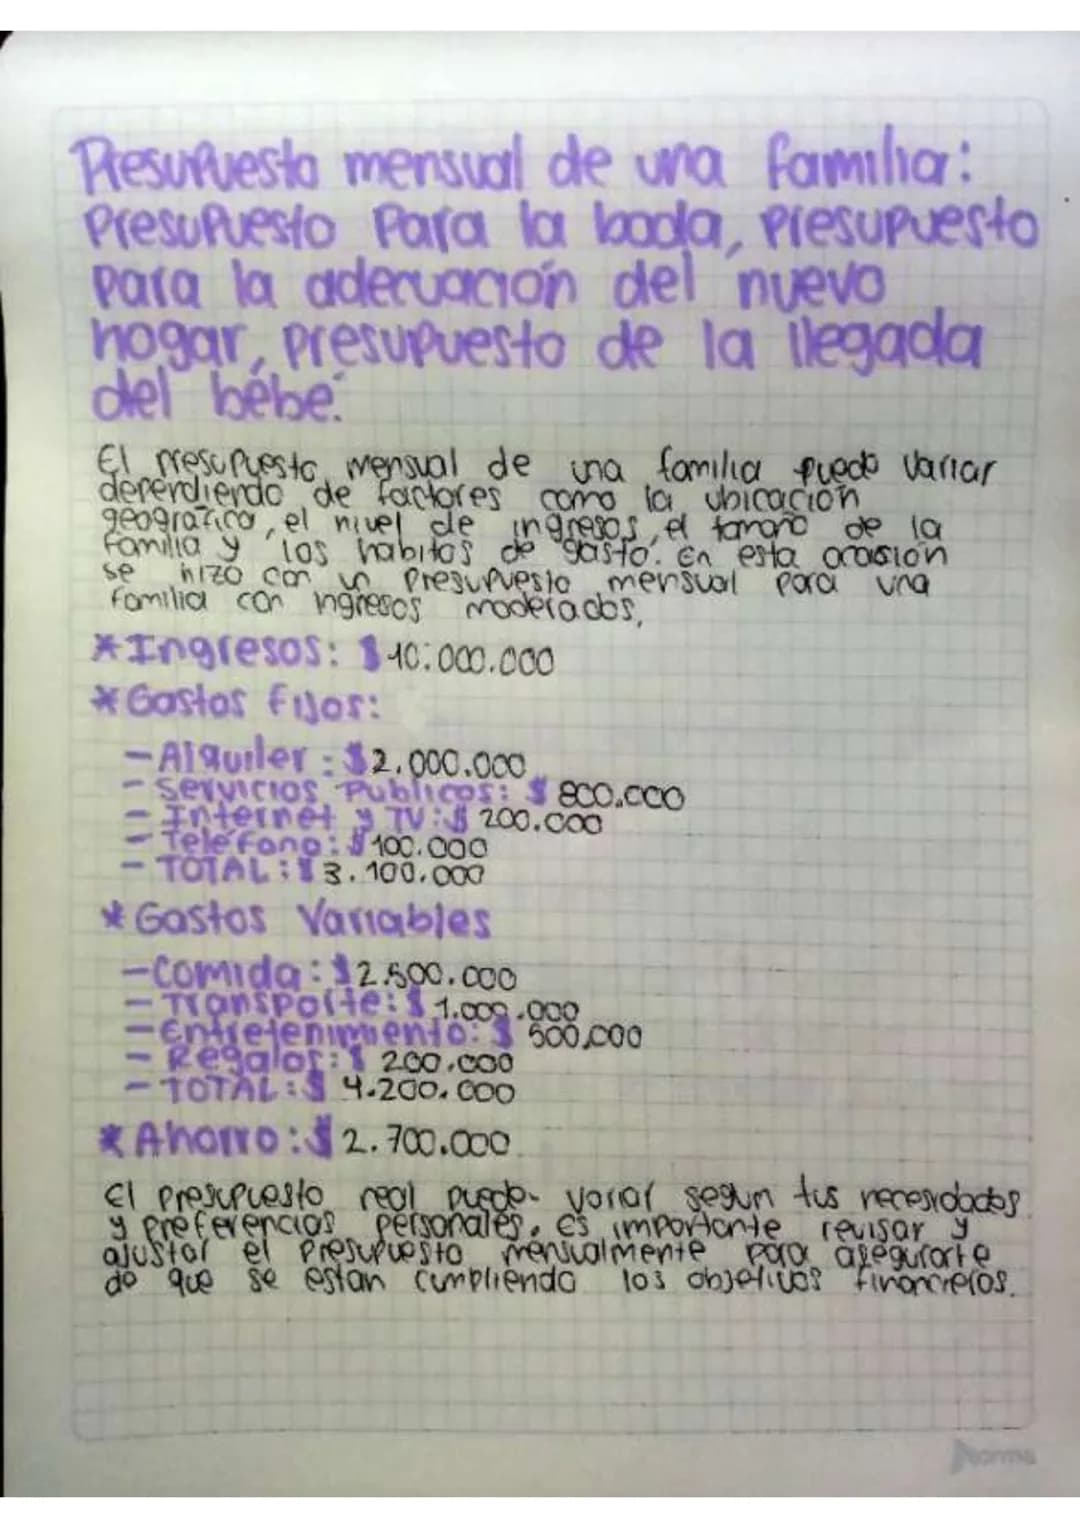 Presupuesto mensual de una familia:
Presupuesto Para la boda, presupuesto
para la adecuación del nuevo
hogar, presupuesto de la llegada
del bébe.
El presupuesto mensual de una familia puede variar
dependiendo de factores como la ubicación
geográfica, el nivel de ingresos, el tamaño de la
familia y los habitos de gasto. En esta ocasión
se hizo con un presupuesto mensual para una
familia con ingresos moderados,
*Ingresos: $10.000.000
*Gastos Fijos:
- Alquiler: $2.000.000
- Servicios Publicos: $ 800.000
- Internet y TV: $ 200.000
- Teléfono: $100.000
- TOTAL: $3.100.000
*Gastos Variables
- Comida: $2.500.000
- Transporte: $ 1.000.000
- Entretenimiento: $ 500,000
- Regalos: $ 200.000
- TOTAL: $ 4.200.000
*Ahorro: $2.700.000
El presupuesto real puede variar segun tus necesidades
y preferencias personales. es importante revisar y
ajustar el presupuesto mensualmente para asegurarte
de que se estan cumpliendo los objetivos financieros.
Norma